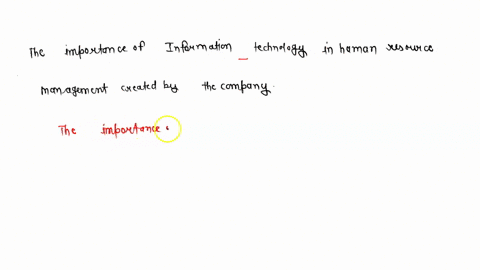 The importance of Information technology in human resource
management created by the company.
The importance